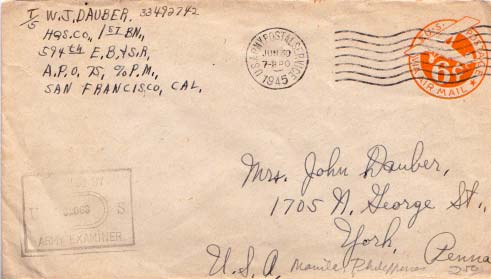 T/5 W.J. DAUBER. 33492742
HQS.CO, 1ST BN,
594th E,B,&S,R,
A.P.O. 75, % P.M.,
SAN FRANCISCO, CAL,
U.S. ARMY POSTAL SERVICE
JUN 30
7-8 PM
1945
U.S. POSTAGE
6¢
VIA AIR MAIL
Mrs. John Dauber,
1705 N. George St.,
York, Penna
U.S.A. Manila, Philippines
BY
U S
ARMY EXAMINER